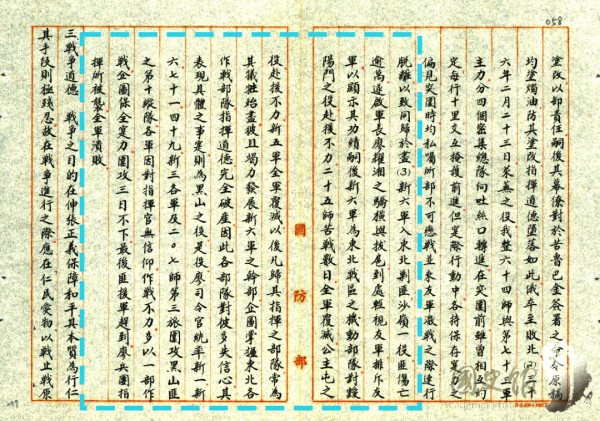 058
塗改以卸責任嗣後其幕僚對於苦魯巴金簽署之命令原稿
均塗燭油防其塗改指揮道德墮落如此俄卒主敗北
六年二月二十三日萊蕪之役我整六十四師與第七十三軍
主力分四個密集總隊向吐絲口轉進在突圍前雖曾相互約
定每行十里交互掩護前進但實際行動中各持保存實力之
偏見突圍時均私囑所部不可應戰並未友軍激戰之際逕行
脫離以致同歸於盡(3)新六軍入東北剿匪沙嶺一役匪傷亡
逾萬遂啟軍長廖耀湘之驕橫與拔扈到處輕視友軍排斥友
軍以顯示其功績嗣後新六軍為東北戰區之機動部隊對援
陽門之役赴援不力二十五師苦戰數日全軍覆滅公主屯之
國防部
役赴援不力新五軍全軍覆滅以後凡歸其指揮之部隊常為
其犧牲殆盡彼且竭力發展新六軍之幹部企圖掌握東北各
作戰部隊指揮道德完全破產因此各部隊對彼多失信心其
表現具體之事實則為黑山之役是役廖司令官統率新一新
六七十一四十九新三各軍及二〇七師第三旅圍攻黑山匪
之第十縱隊各軍因對指揮官無信仰作戰不力多以一部作
戰企圖保全實力圍攻三日不下最後匪援軍趕到廖兵團指
揮所被襲全軍潰敗
三戰爭道德 戰爭之目的在伸張正義保障和平其本質為行仁
其手段則極殘忍故在戰爭進行之際應在仁民愛物以戰止戰原
國史館